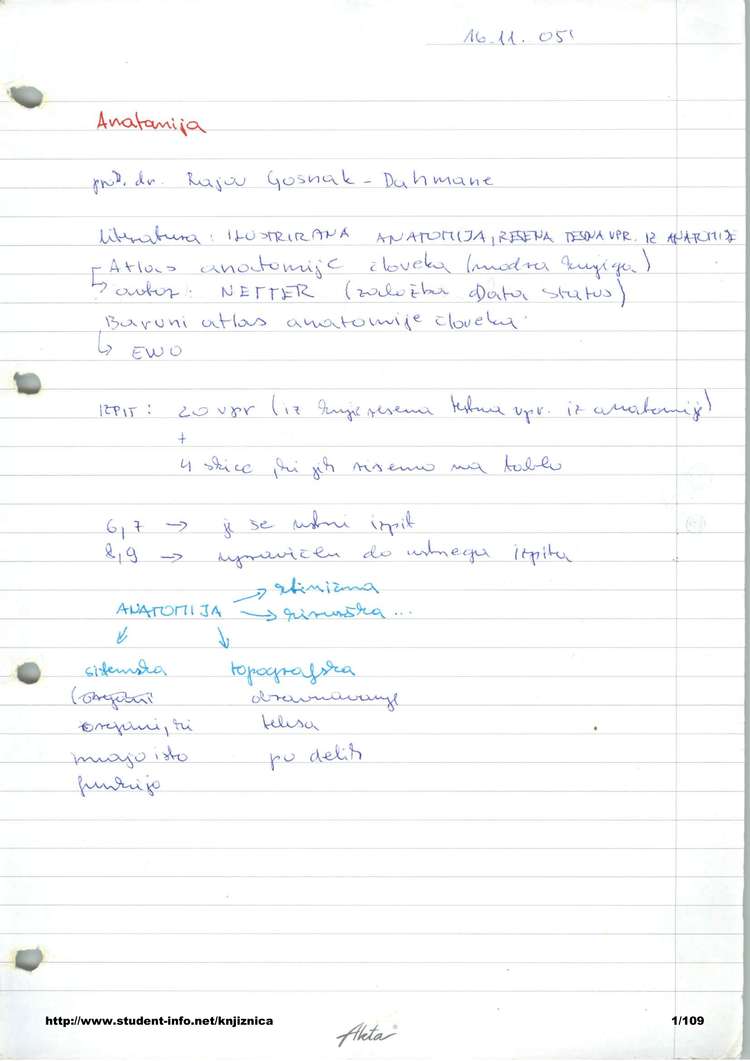 16.11.05'
Anatomija
prof. dr. Raja Gosnak - Dahmane
literatura : ILUSTRIRANA ANATOMIJA, REŠENA TESTNA VPR. IZ ANATOMIJE
Atlas anatomije človeka (modra knjiga)
↳ avtor : NETTER (založba Data status)
Barvni atlas anatomije človeka
↳ EWO
IZPIT : 20 vpr (iz knjige rešena testna vpr. iz anatomije)
+
4 skice, ki jih rišemo na tablo
6,7 → je še ustni izpit
8,9 → upravičen do ustnega izpita
→ klinična
ANATOMIJA → risarska ...
sistemska topografska
(organi obravnavanje
organi, ki telesa
imajo isto po delih
funkcijo
http://www.student-info.net/knjiznica 1/109
Aleta